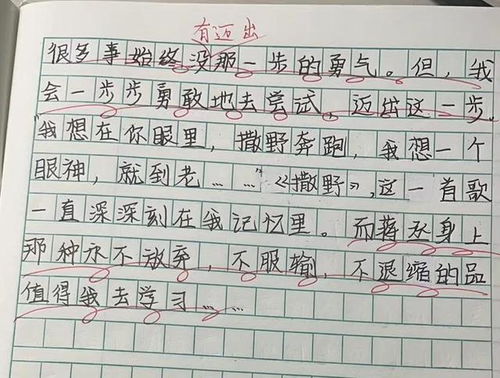 有迈出
很多事始终没那一步的勇气。但，我
会一步步勇敢地去尝试，迈出这一步。
"我想在你眼里，撒野奔跑，我想一个
眼神，就到老……"《撒野》，这一首歌
一直深深刻在我记忆里。而蒋丞身上
那种永不放弃，不服输，不退缩的品
值得我去学习……